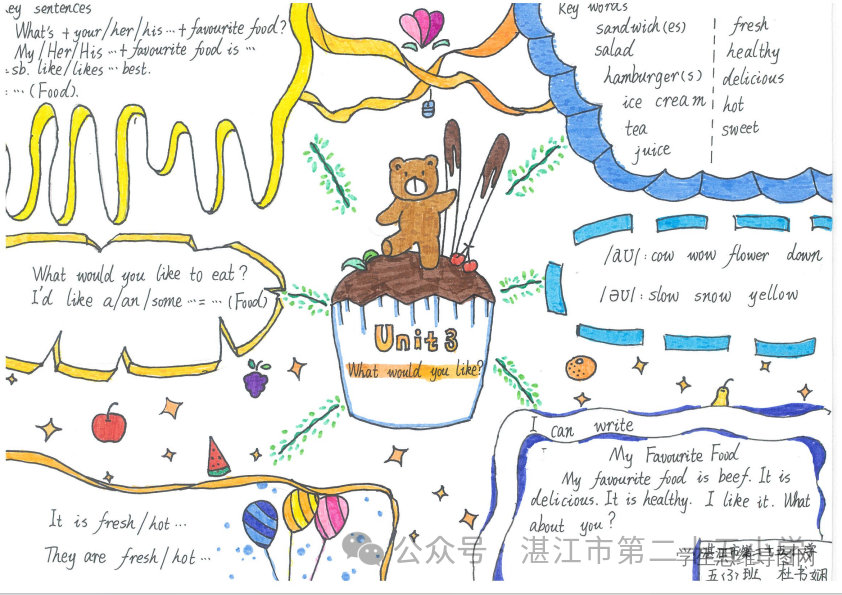 ey sentences
What's + your/her/his ... + favourite food?
My/Her/His ... + favourite food is ...
sb. like/likes ... best.
: ... (Food).
Key words
sandwich(es)
salad
hamburger(s)
ice cream
tea
juice
fresh
healthy
delicious
hot
sweet
What would you like to eat?
I'd like a/an/some ... = ... (Food)
Unit 3
What would you like?
/aʊ/: cow wow flower down
/əʊ/: slow snow yellow
It is fresh/hot ...
They are fresh/hot ...
I can write
My Favourite Food
My favourite food is beef. It is
delicious. It is healthy. I like it. What
about you?
公众号 · 湛江市第二十五小学
学生思维导图网
湛江市第二十五小学
五(3)班 杜书娴